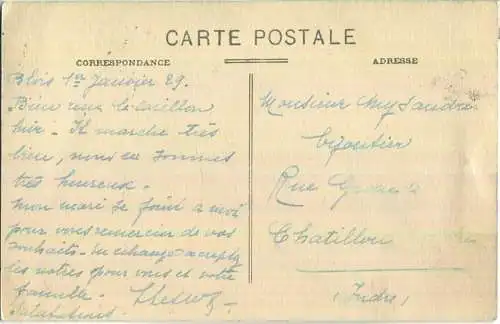 CARTE POSTALE
CORRESPONDANCE
ADRESSE
Blois 1er Janvier 29.
Bien reçu le
hier - Il marche très
bien, nous en sommes
très heureux.
Mon mari se joint à moi
pour vous remercier de vos
souhaits - En échange acceptez
les nôtres pour vous et votre
famille.
Salutations.
Monsieur
bijoutier
Rue
Chatillon
(Indre)